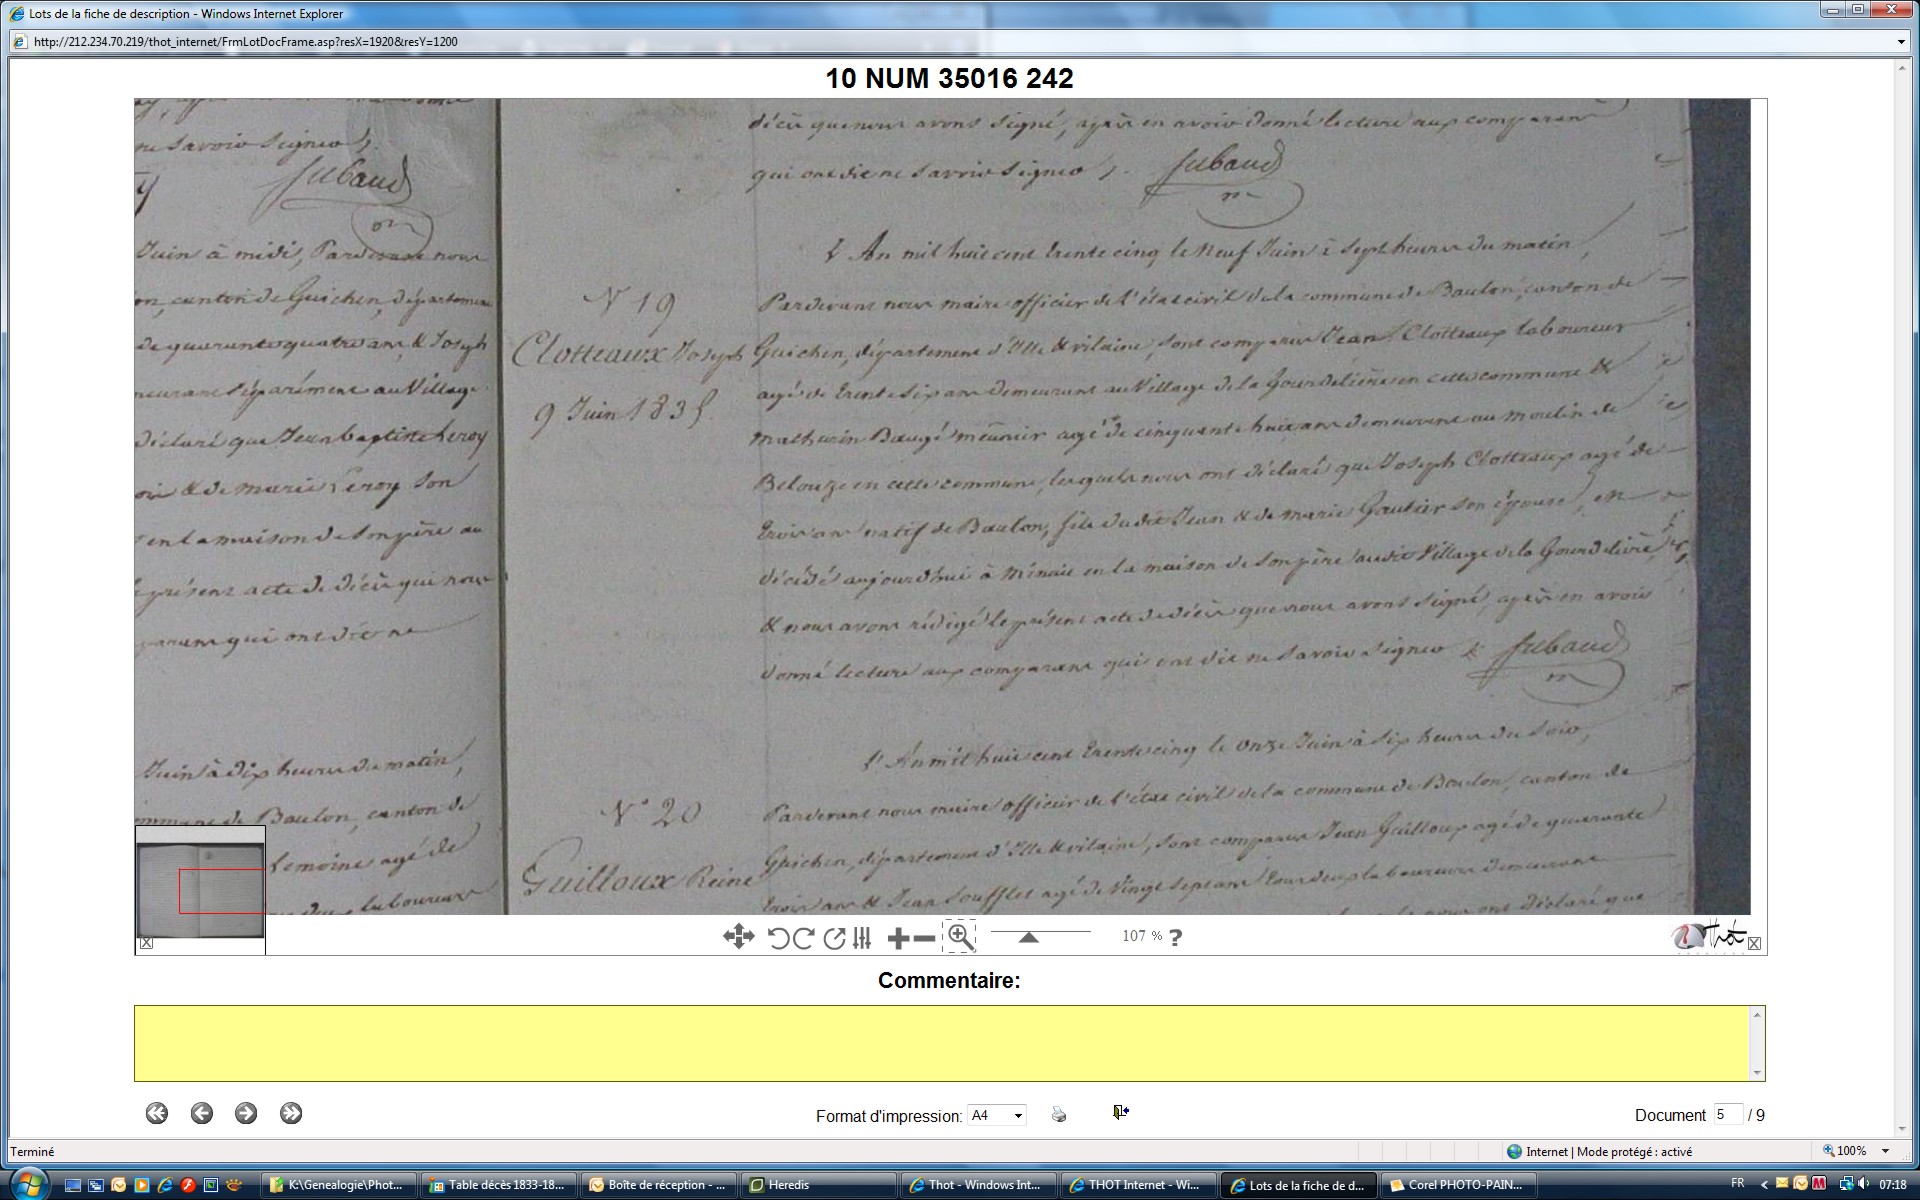 Lots de la fiche de description - Windows Internet Explorer
http://212.234.70.219/thot_internet/FrmLotDocFrame.asp?resX=1920&resY=1200
10 NUM 35016 242
ne savoir signer
Jubaud
Juin à midi, Pardevant nous
on, canton de Guichen, département
de quarante quatre ans, & Joseph
meurant séparément au Village
déclaré que Jean baptiste Leroy
& de marie Leroy son
en la maison de son père au
présent acte de décès qui nous
qui ont dit ne
Juin à dix heures du matin,
commune de Baulon, canton de
Lemoine agé de
laboureur
N 19
Clotteaux Joseph
9 Juin 1835
N° 20
Guilloux Reine
décès que nous avons signé, après en avoir donné lecture aux comparans
qui ont dit ne savoir signer . Jubaud
L'An mil huit cent trente cinq le Neuf Juin à Sept heures du matin,
Pardevant nous maire officier de l'état civil de la commune de Baulon, canton de
Guichen, département d'Ille & vilaine, sont comparus Jean Clotteaux laboureur
agé de trente six ans demeurant au Village de la Gourdelière en cette commune &
mathurin Baugé meunier agé de cinquante huit ans demeurant au moulin de
Belouze en cette commune, lesquels nous ont déclaré que Joseph Clotteaux agé de
trois ans natif de Baulon, fils du dit Jean & de marie Gautier son épouse, est
décédé aujourd'hui à Minuit en la maison de son père au dit Village de la Gourdelière,
& nous avons rédigé le présent acte de décès que nous avons signé, après en avoir
donné lecture aux comparans qui ont dit ne savoir signer Jubaud
L'An mil huit cent trente cinq le onze Juin à six heures du soir,
Pardevant nous maire officier de l'état civil de la commune de Baulon, canton de
Guichen, département d'Ille & vilaine, sont comparus Jean Guilloux agé de quarante
trois ans & Jean Soufflet agé de Vingt Sept ans tous deux laboureurs demeurant
nous ont déclaré que
107 % ?
Thot
Commentaire:
Format d'impression: A4
Document 5 / 9
Terminé
Internet | Mode protégé : activé
100%
K:\Genealogie\Phot...
Table décès 1833-18...
Boîte de réception - ...
Heredis
Thot - Windows Int...
THOT Internet - Wi...
Lots de la fiche de d...
Corel PHOTO-PAIN...
FR
07:18